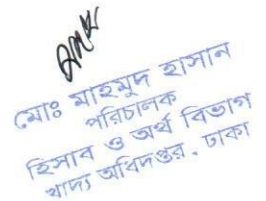 মোঃ মাহমুদ হাসান
পরিচালক
হিসাব ও অর্থ বিভাগ
খাদ্য অধিদপ্তর, ঢাকা